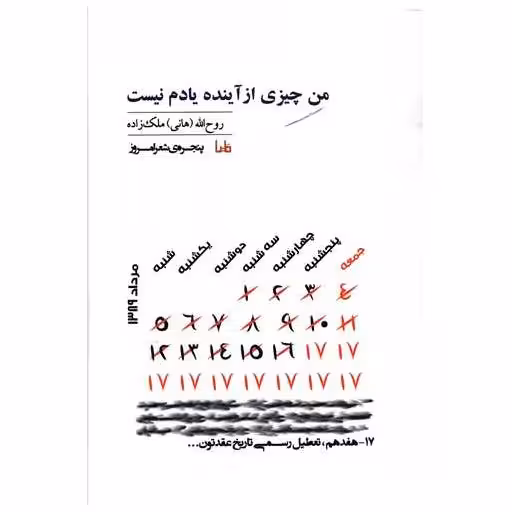 من چیزی از آینده یادم نیست
روح الله (هانی) ملک‌زاده
پنجره‌ی شعر امروز
مرداد ۱۳۸۹
شنبه یکشنبه دوشنبه سه شنبه چهارشنبه پنجشنبه جمعه
۱ ۲ ۳ ۴
۵ ۶ ۷ ۸ ۹ ۱۰ ۱۱
۱۲ ۱۳ ۱۴ ۱۵ ۱۶ ۱۷ ۱۷
۱۷ ۱۷ ۱۷ ۱۷ ۱۷ ۱۷ ۱۷
۱۷- هفدهم، تعطیل رسمی تاریخ عقدتون...